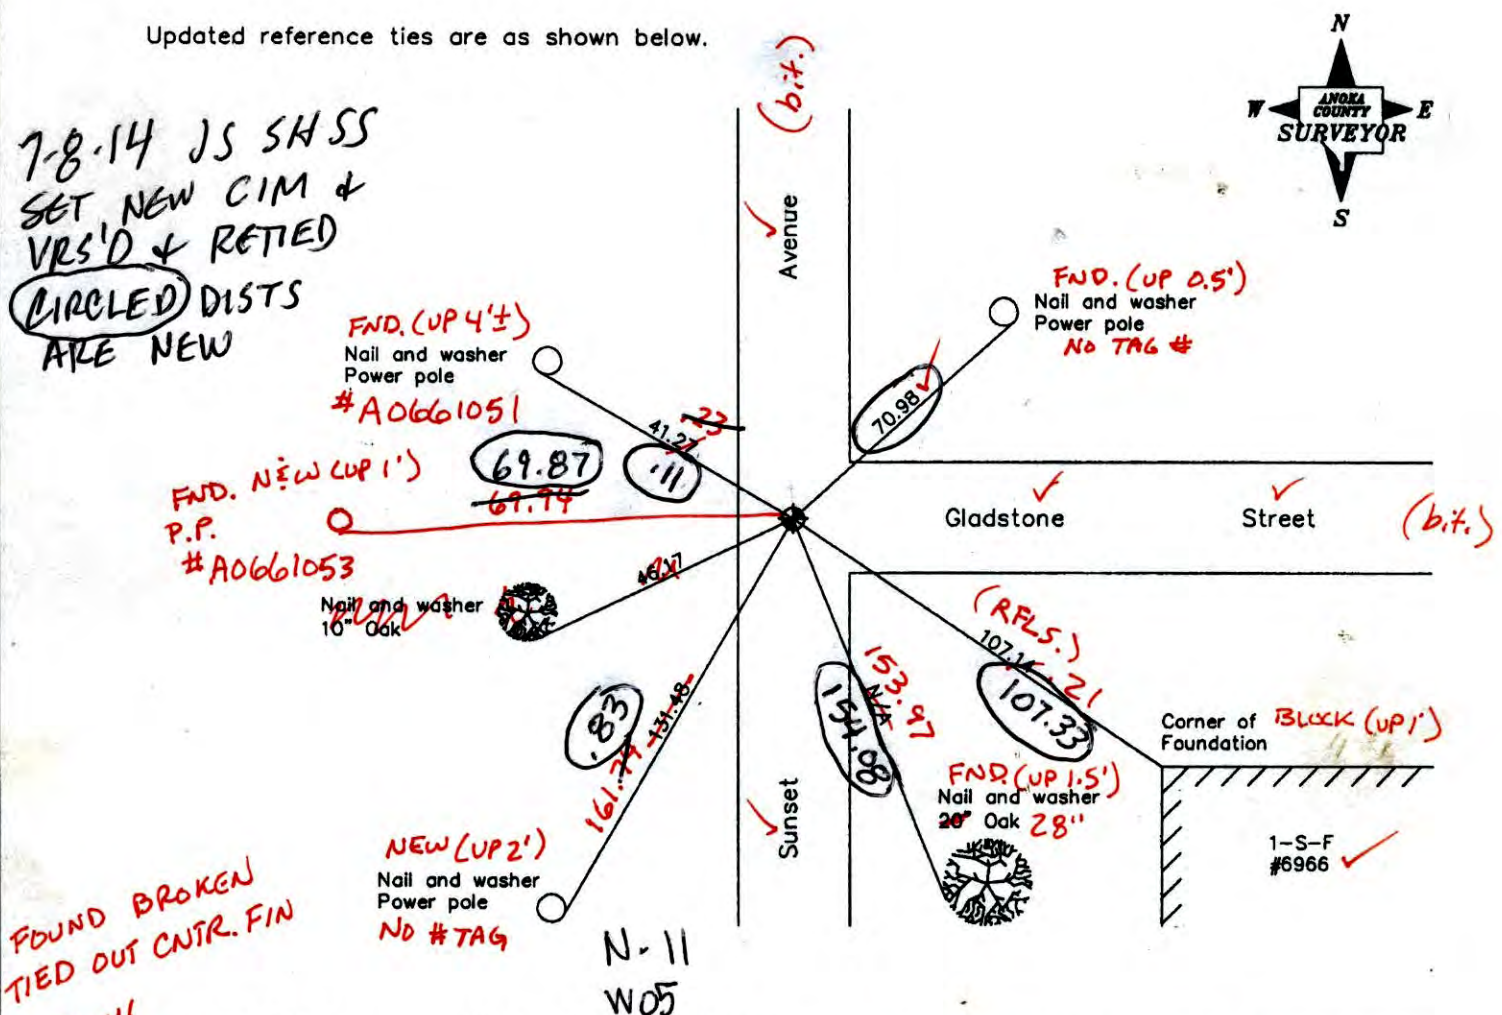 Updated reference ties are as shown below.
(bit.)
N
W ANOKA COUNTY E
SURVEYOR
S
7-8-14 JS SH SS
SET NEW CIM &
VRS'D & RETIED
CIRCLED DISTS
ARE NEW
Avenue
FND. (UP 0.5')
Nail and washer
Power pole
NO TAG #
FND. (UP 4'±)
Nail and washer
Power pole
#A0661051
70.98
41.27
.23
.11
69.87
69.94
FND. N&W (UP 1')
P.P.
#A0661053
Gladstone Street (bit.)
46.17
Nail and washer
10" Oak
(RFLS.)
107.14
.21
107.33
153.97
N/A
154.08
.83
131.48
161.79
Corner of BLOCK (UP 1')
Foundation
FND. (UP 1.5')
Nail and washer
20" Oak 28"
Sunset
1-S-F
#6966
NEW (UP 2')
Nail and washer
Power pole
NO # TAG
FOUND BROKEN
TIED OUT CNTR. FIN
N-11
W05